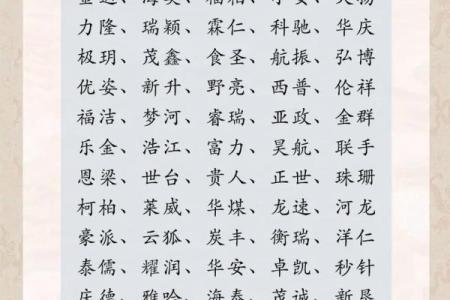 力隆、瑞颖、霖仁、科驰、华庆
极玥、茂鑫、食圣、航振、弘博
优姿、新升、野亮、西普、伦祥
福洁、梦河、睿瑞、亚政、金群
乐金、浩江、富力、昊航、联手
恩梁、世台、贵人、正世、珠珊
柯柏、莱威、华煤、龙速、河龙
豪派、云狐、炭丰、衡瑞、洋仁
泰儒、耀润、华安、卓凯、秒针